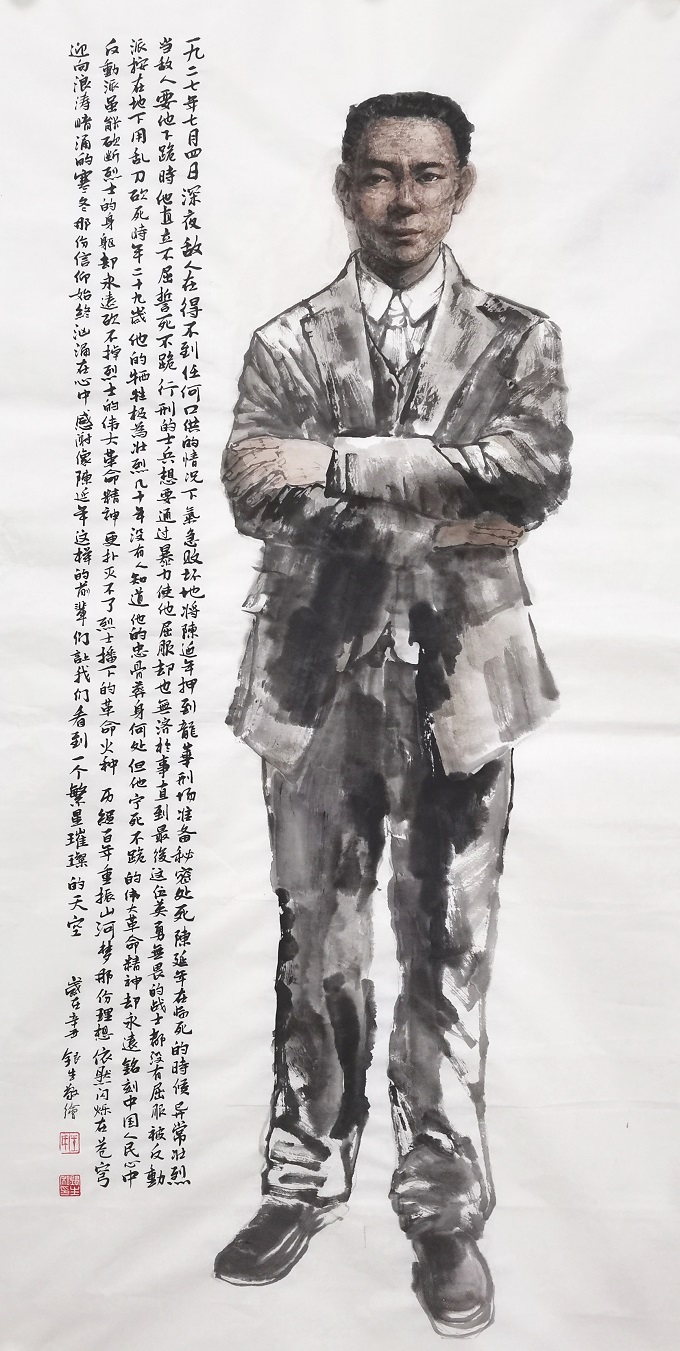 一九二七年七月四日深夜敌人在得不到任何口供的情况下氣急败坏地将陳延年押到龍華刑场准备秘密处死陳延年在临死的時候异常壮烈
当敌人要他下跪時他直立不屈誓死不跪行刑的士兵想要通过暴力使他屈服却也無济於事直到最後这位英勇無畏的战士都没有屈服被反動
派按在地下用乱刀砍死時年二十九歲他的牺牲极為壮烈几十年没有人知道他的忠骨葬身何处但他宁死不跪的偉大革命精神却永遠銘刻中国人民心中
反動派虽能砍断烈士的身躯却永遠砍不掉烈士的偉大革命精神更扑灭不了烈士播下的革命火种历經百年重振山河梦那份理想依然闪烁在苍穹
迎向浪涛暗涌的寒冬那份信仰始终汹涌在心中感谢像陳延年这样的前辈们让我们看到一个繁星璀璨的天空
歲在辛丑銀生敬繪